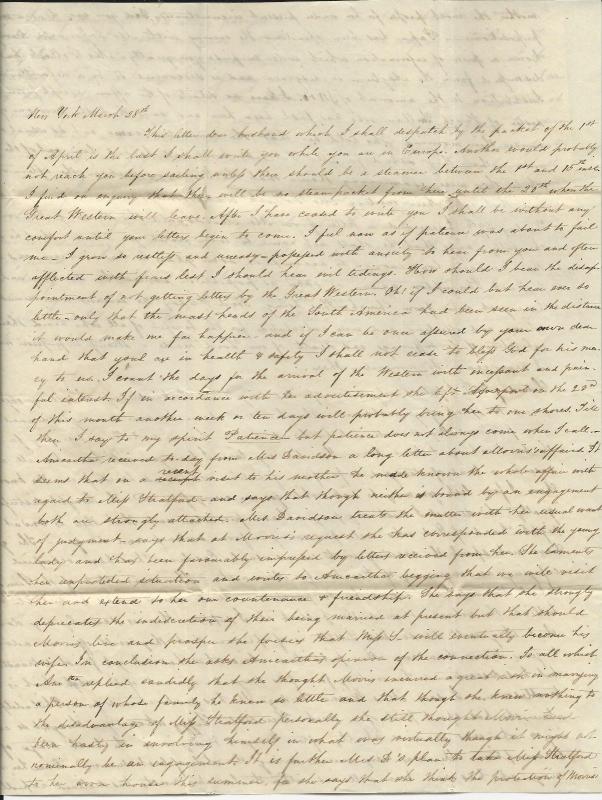 New York March 28th
This letter dear husband which I shall despatch by the packet of the 1st
of April is the last I shall write you while you are in Europe. Another would probably
not reach you before sailing unless there should be a steamer between the 1st and 15th inst.
I find on enquiry that there will be no steam packet from here until the 20th when the
Great Western will leave. After I have ceased to write you I shall be without any
comfort until your letters begin to come. I feel now as if patience was about to fail
me – I grow so restless and uneasy – possessed with anxiety to hear from you and often
afflicted with fears lest I should hear evil tidings. How should I bear the disap-
pointment of not getting letters by the Great Western. Oh! if I could but hear ever so
little – only that the mast heads of the South America had been seen in the distance
it would make me far happier – and if I can be once assured by your own dear
hand that you are in health & safety I shall not cease to bless God for his mer-
cy to us. I count the days for the arrival of the Western with incessant and pain-
ful interest. If in accordance with her advertisement she left Liverpool on the 23d
of this month another week or ten days will probably bring her to our shores. Till
then I say to my spirit Patience – but patience does not always come when I call. –
Anicartha received to-day from Mrs Davidson a long letter about Morris's affairs. It
seems that on a recent visit to his mother he made known the whole affair with
regard to Miss Stratford – and says that though neither is bound by an engagement
both are strongly attached. Mrs Davidson treats the matter with her usual want
of judgment – says that at Morris's request she has corresponded with the young
lady and has been favourably impressed by letters received from her. She laments
her unprotected situation and writes to Anicartha begging that we will visit
her and extend to her our countenance & friendship. She says that she strongly
depreciates the indiscretion of their being married at present but that should
Morris live and prosper she foresees that Miss S. will eventually become his
wife. In conclusion she asks Anicartha's opinion of the connection. To all which
replied candidly that she thought Morris incurred a great risk in marrying
a person of whose family he knew so little and that though she knew nothing to
the disadvantage of Miss Stratford personally she still thought Morris had
been hasty in involving himself in what was virtually though it might not
nominally be an engagement. It is further Mrs D's plan to take Miss Stratford
to her own house this summer, for she says that she thinks the protection of Morris'